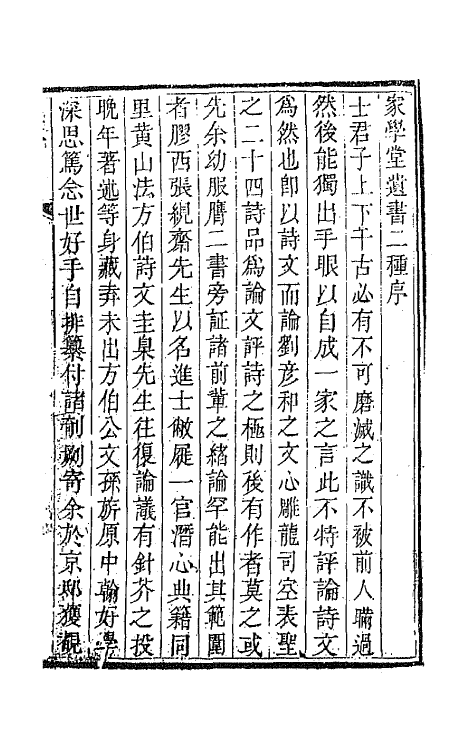 家學堂遺書二種序
士君子上下千古必有不可磨滅之識不被前人瞞過
然後能獨出手眼以自成一家之言此不特評論詩文
爲然也卽以詩文而論劉彥和之文心雕龍司空表聖
之二十四詩品爲論文評詩之極則後有作者莫之或
先余幼服膺二書旁証諸前軰之緒論罕能出其範圍
者膠西張綂齋先生以名進士敝屣一官潛心典籍同
里黄山法方伯詩文圭臬先生往復論議有針芥之投
晚年著述等身藏弆未出方伯公文孫旂原中翰好學
深思篤念世好手自排纂付諸剞劂寄余於京邸獲覩